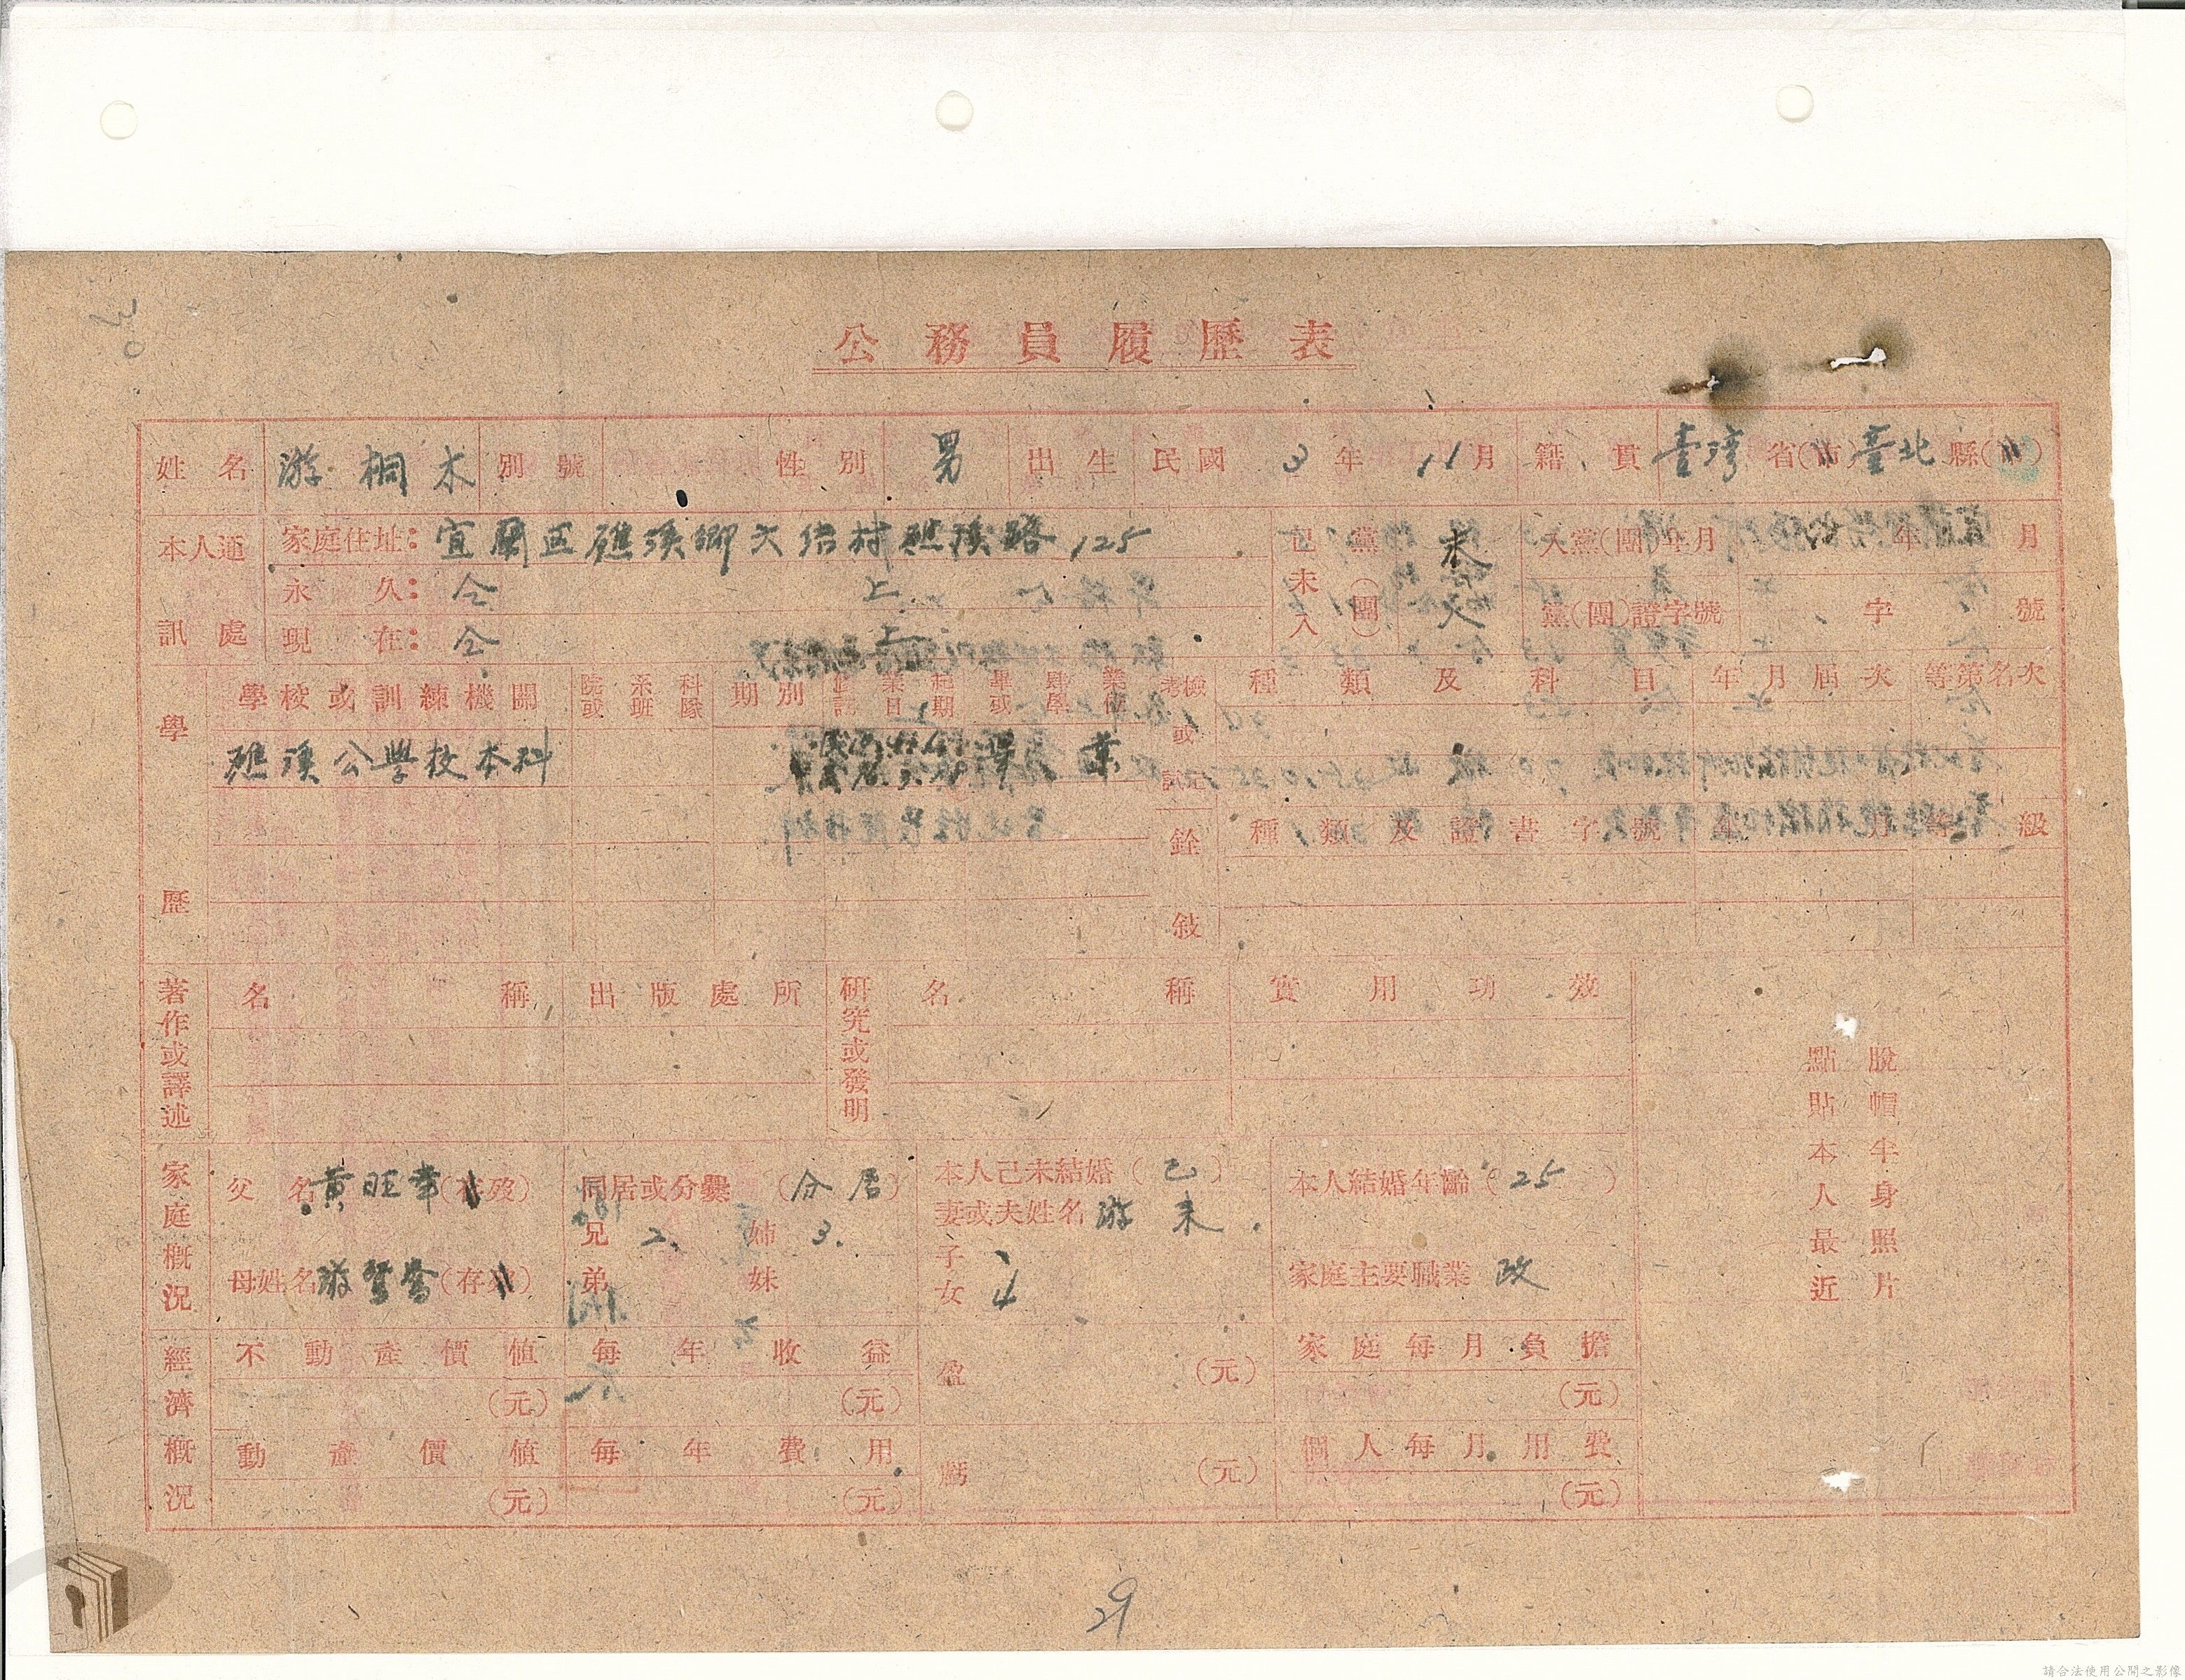 公務員履歷表
姓名 游桐木 別號 性別 男 出生 民國 3年11月 籍貫 臺灣省(市)臺北縣(市)
本人通訊處
家庭住址：宜蘭區礁溪鄉大 村礁溪路125
永久：仝上
現在：仝上
已未入黨(團) 未入
入黨(團)年月 年 月
黨(團)證字號 字 號
學歷
學校或訓練機關 院或 系班 科隊 期別 畢業或肄業
礁溪公學校本科 畢業
檢或試 種類及科目 年月屆次 等第名次
銓敍 種類及證書字號 年 月 等級
著作或譯述 名稱 出版處所
研究或發明 名稱 實用功效
脫帽半身照片
點貼本人最近
家庭概況
父名 黃旺 (存歿) 同居或分爨(分居) 本人已未結婚(已) 本人結婚年齡(25)
兄 2. 姊 3. 妻或夫姓名 游未
母姓名 游鴛鴦 (存歿) 弟 妹 子 女 4 家庭主要職業 政
經濟概況
不動產價值 (元) 每年收益 (元) 盈 (元) 家庭每月負擔 (元)
動產價值 (元) 每年費用 (元) 虧 (元) 個人每月用費 (元)
29
請合法使用公開之影像